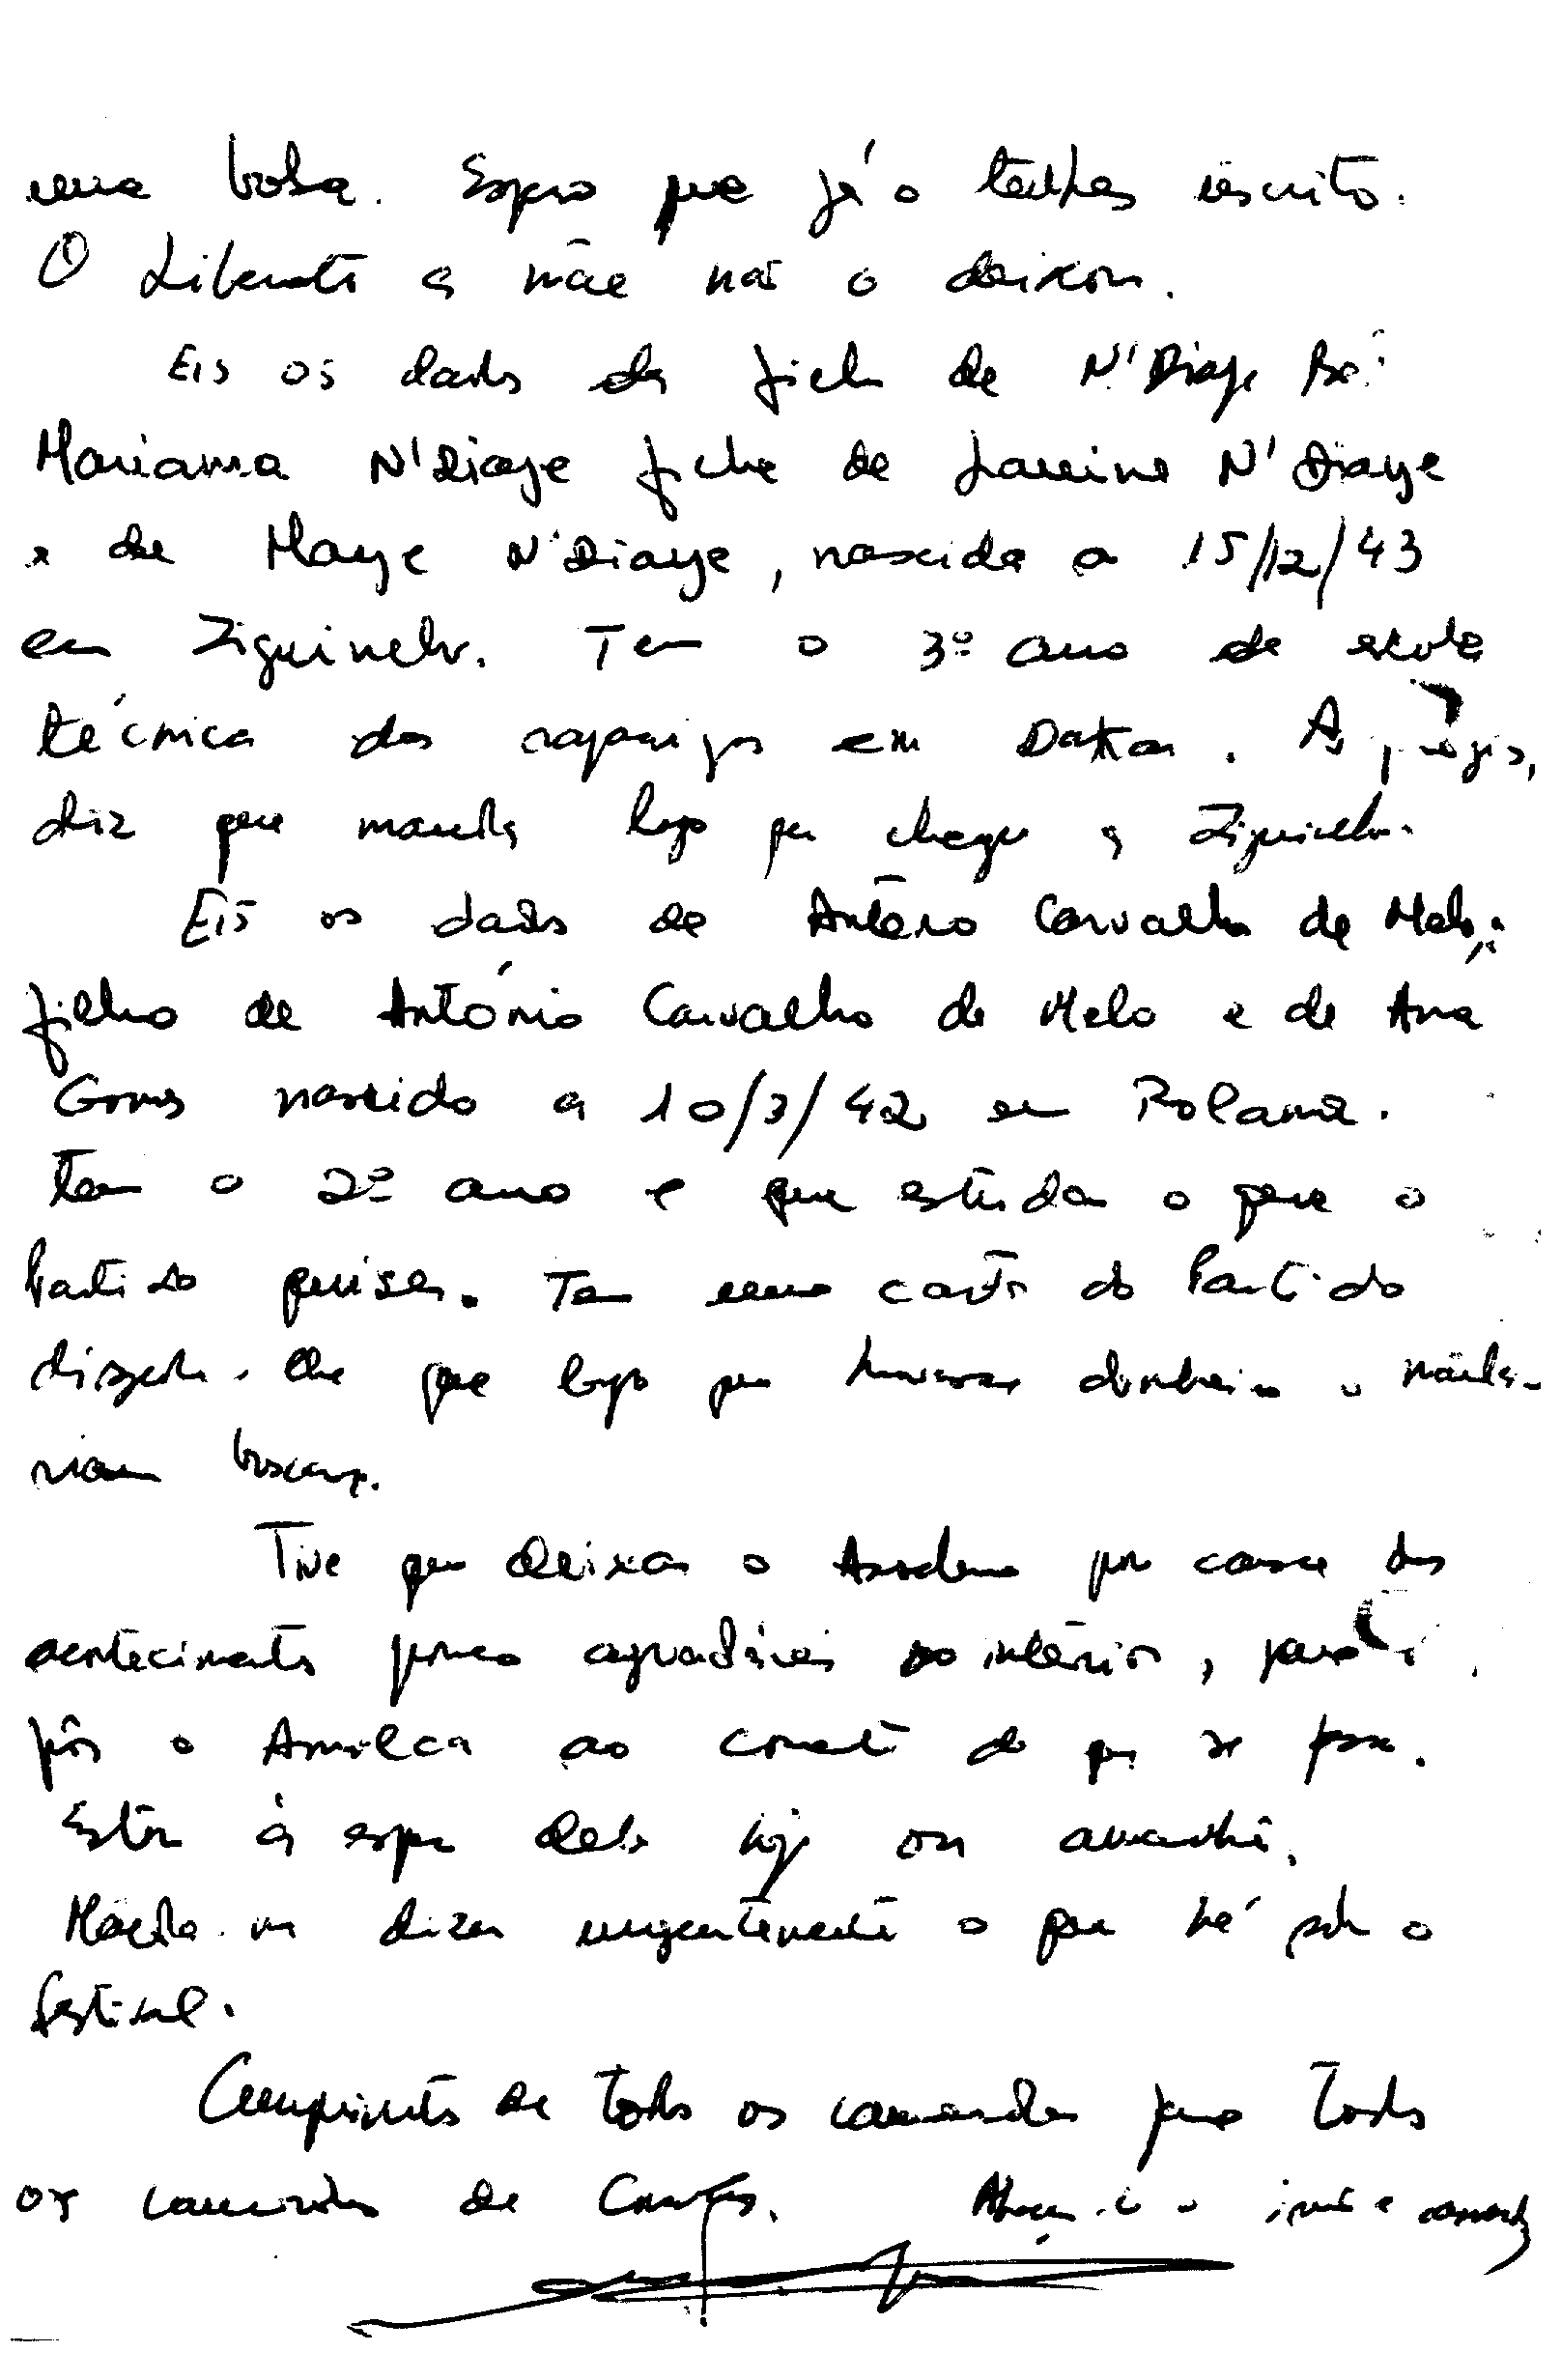 uma bolsa. Espero que já o tenhas escrito.
O Liberato a mãe não o deixou.
Eis os dados da ficha de N'Diaye Bé:
Mariama N'Diaye filha de Lamine N'Diaye
e de Maye N'Diaye, nascida a 15/12/43
em Ziguinchor. Tem o 3º ano de escola
técnica das raparigas em Dakar.
diz que manda logo que chegue a Ziguinchor.
Eis os dados de Antero Carvalho de Melo:
filho de António Carvalho de Melo e de Ana
Gomes nascido a 10/3/42 em Bolama.
Tem o 2º ano e quer estudar o que o
Partido quiser. Tem uma carta do Partido
dizendo-lhe que logo que houvesse dinheiro o manda-
riam buscar.
Tive que deixar o por causa dos
acontecimentos pouco agradáveis no interior, para
pôr o Amilcar ao corrente do que se passa.
Estou à espera dele hoje ou amanhã.
Manda-me dizer urgentemente o que há sobre o
festival.
Cumprimentos de todos os camaradas para todos
os camaradas de Conakry. Abraça-te o irmão e camarada